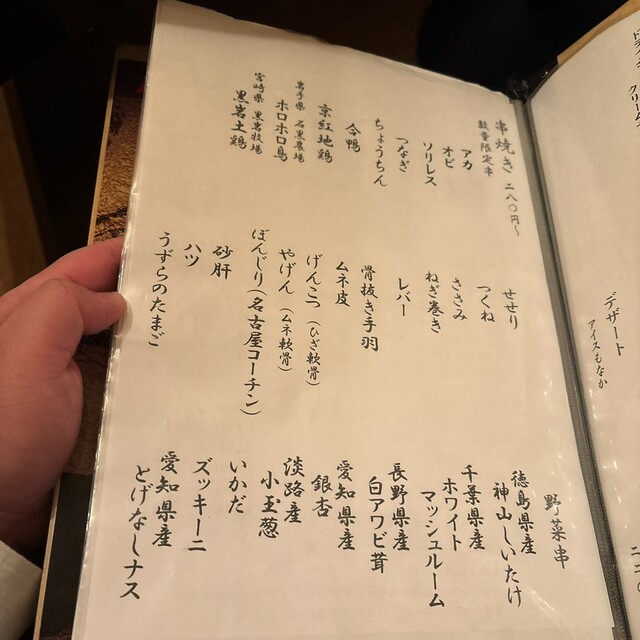 串焼き 二八〇円〜
数量限定串
アカ
オビ
ソリレス
つなぎ
ちょうちん
合鴨
京紅地鶏
岩手県 石黒農場
ホロホロ鳥
宮崎県 黒岩牧場
黒岩土鶏
せせり
つくね
ささみ
ねぎ巻き
レバー
骨抜き手羽
ムネ皮
げんこつ（ひざ軟骨）
やげん（ムネ軟骨）
ぼんじり（名古屋コーチン）
砂肝
ハツ
うずらのたまご
野菜串
徳島県産
神山しいたけ
千葉県産
ホワイト
マッシュルーム
長野県産
白アワビ茸
愛知県産
銀杏
淡路産
小玉葱
いかだ
ズッキーニ
愛知県産
とげなしナス
デザート
アイスもなか